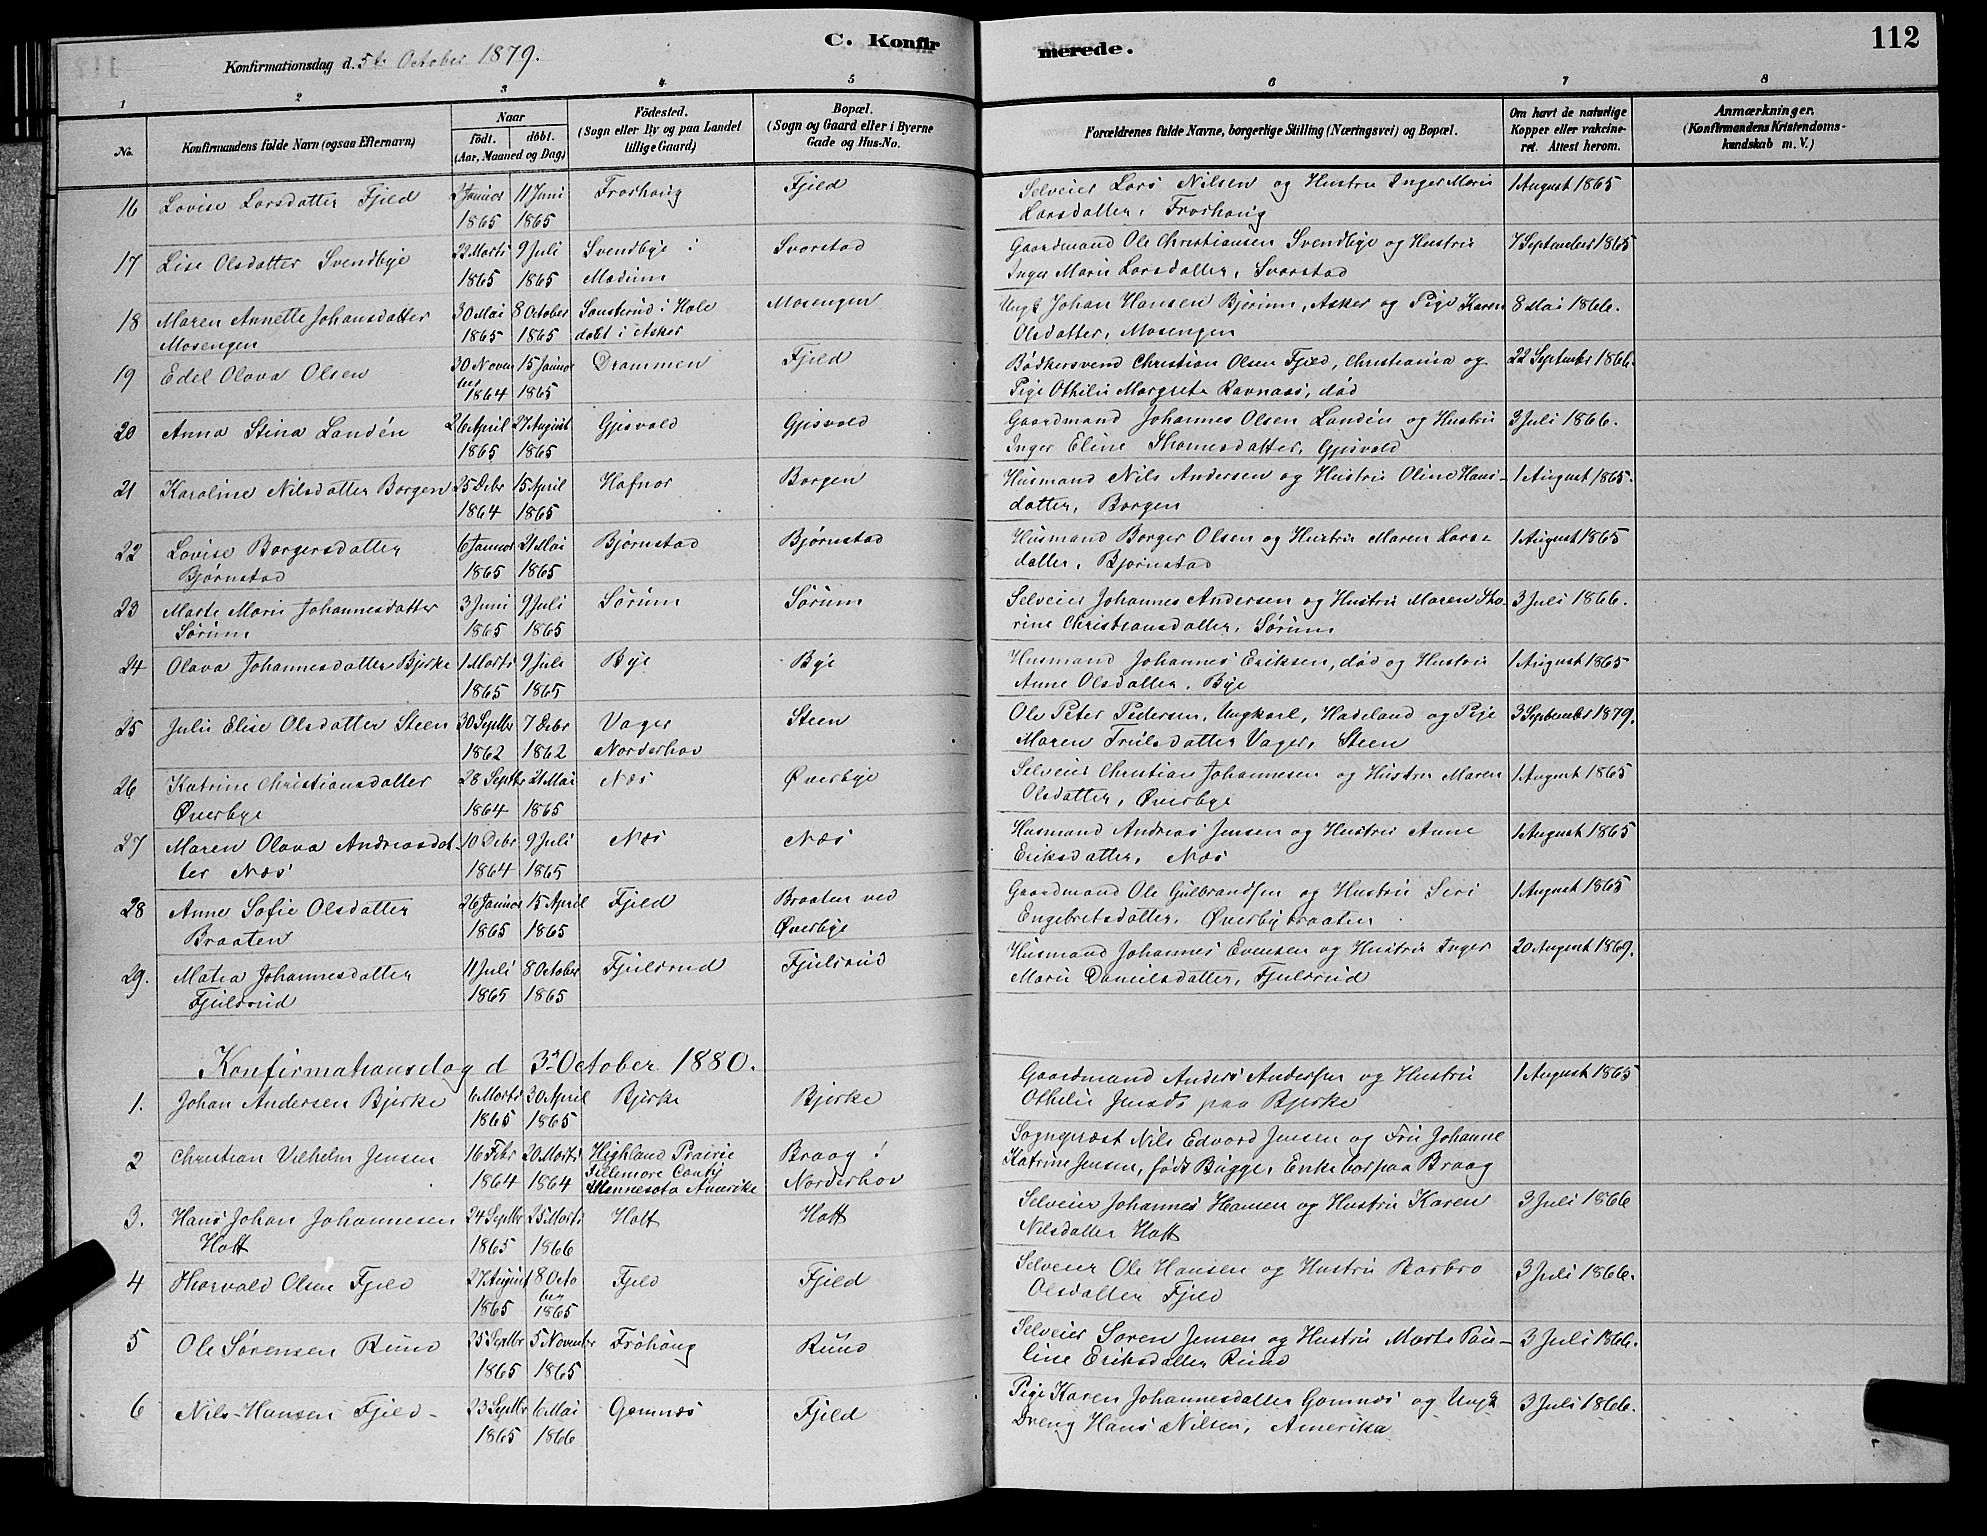 C. Konfirmerede.
112
Konfirmationsdag d. 5te October 1879.
1 2 3 4 5 6 7 8
No.
Konfirmandens fulde Navn (ogsaa Efternavn)
Naar
födt. döbt.
(Aar, Maaned og Dag)
Födested.
(Sogn eller By og paa Landet
tillige Gaard)
Bopæl.
(Sogn og Gaard eller i Byerne
Gade og Hus-No.
Forældrenes fulde Navne, borgerlige Stilling (Næringsvei) og Bopæl.
Om havt de naturlige
Kopper eller vakcine-
ret. Attest herom.
Anmærkninger.
(Konfirmandens Kristendoms-
kundskab m. V.)
16 Lovise Larsdatter Fjeld 2 Januar 11 Juni Froshaug Fjeld Selveier Lars Nilsen og Hustru Inger Marie 1 August 1865
1865 1865 Larsdatter, Froshaug
17 Lise Olsdatter Svendbye 23 Marts 9 Juli Svendbye i Svarstad Gaardmand Ole Christiansen Svendbye og Hustru 7 September 1865
1865 1865 Modum Inger Marie Larsdatter, Svarstad
18 Maren Annette Johansdatter 30 Mai 8 October Sønsterud i Hole Mosengen Ungk Johan Hansen Bjørum, Asker og Pige Karen 8 Mai 1866.
Mosengen 1865 1865 døbt i Asker Olsdatter, Mosengen
19 Edel Olava Olsen 30 Novem 15 Januar Drammen Fjeld Bødkersvend Christian Olsen Fjeld, Christiania og 22 September 1866.
ber 1864 1865 Pige Othilie Margrete Ravnaas, død
20 Anna Stina Landén 26 April 27 August Gjesvold Gjesvold Gaardmand Johannes Olsen Landén og Hustru 3 Juli 1866.
1865 1865 Inger Eline Thomesdatter, Gjesvold
21 Karoline Nilsdatter Borgen 25 Debr 15 April Hafnor Borgen Husmand Nils Andersen og Hustru Oline Hans- 1 August 1865.
1864 1865 datter, Borgen
22 Lovise Borgersdatter 6 Januar 21 Mai Bjørnstad Bjørnstad Husmand Borger Olsen og Hustru Maren Lars- 1 August 1865
Bjørnstad 1865 1865 datter, Bjørnstad
23 Marte Marie Johannesdatter 3 Juni 9 Juli Sørum Sørum Selveier Johannes Andersen og Hustru Maren Tho- 3 Juli 1866.
Sørum 1865 1865 rine Christiansdatter, Sørum
24 Olava Johannesdatter Bjerke 1 Marts 9 Juli Bye Bye Husmand Johannes Eriksen, død og Hustru 1 August 1865
1865 1865 Anne Olsdatter, Bye
25 Julie Elise Olsdatter Steen 30 Septbr 7 Debr Vager Steen Ole Peter Pedersen, Ungkarl, Hadeland og Pige 3 September 1879.
1862 1862 Norderhov Maren Trulsdatter Vager, Steen
26 Katrine Christiansdatter 28 Septbr 21 Mai Næs Øverbye Selveier Christian Johannesen og Hustru Maren 1 August 1865
Øverbye 1864 1865 Olsdatter, Øverbye
27 Maren Olava Andreasdat- 10 Debr 9 Juli Næs Næs Husmand Andreas Jensen og Hustru Anne 1 August 1865
ter Næs 1864 1865 Eriksdatter, Næs
28 Anne Sofie Olsdatter 26 Januar 15 April Fjeld Braaten ved Gaardmand Ole Gulbrandsen og Hustru Siri 1 August 1865
Braaten 1865 1865 Øverbye Engebretsdatter, Øverbybraaten
29. Matea Johannesdatter 11 Juli 8 October Fjulsrud Fjulsrud Husmand Johannes Evensen og Hustru Inger 20 August 1869.
Fjulsrud 1865 1865 Marie Danielsdatter, Fjulsrud
Konfirmationsdag d 3die October 1880.
1. Johan Andersen Bjerke 6 Marts 30 April Bjerke Bjerke Gaardmand Anders Andersen og Hustru 1 August 1865
1865 1865 Othilie Jensd. paa Bjerke
2 Christian Vilhelm Jensen 16 Febr 20 Marts Highland Prairie Braag i Sognepræst Nils Edvard Jensen og Fru Johanne
1864 1864 Fillemore Conty Norderhov Katrine Jensen, født Bugge, Enke bor paa Braag
Mennesota Amerika
3. Hans Johan Johannesen 24 Septbr 25 Marts Hott Hott Selveier Johannes Hansen og Hustru Karen 3 Juli 1866
Hott 1865 1866 Nilsdatter Hott
4 Thorvald Olsen Fjeld 27 August 8 Octo Fjeld Fjeld Selveier Ole Hansen og Hustru Barbro 3 Juli 1866.
1865 ber 1865 Olsdatter Fjeld
5 Ole Sørensen Rund 25 Septbr 5 November Frøhaug Rund Selveier Søren Jensen og Hustru Marte Pau- 3 Juli 1866.
1865 1865 line Eriksdatter Rund
6 Nils Hansen Fjeld 23 Septbr 6 Mai Gomnæs Fjeld Pige Karen Johannesdatter Gomnæs og Ungk 3 Juli 1866.
1865 1866 Dreng Hans Nilsen, Amerika